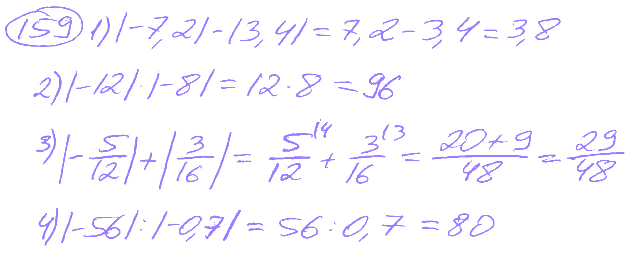 159 1) |-7,2| - |3,4| = 7,2 - 3,4 = 3,8
2) |-12| · |-8| = 12 · 8 = 96
3) |-5/12| + |3/16| = 5/12 \4 + 3/16 \3 = (20+9)/48 = 29/48
4) |-56| : |-0,7| = 56 : 0,7 = 80